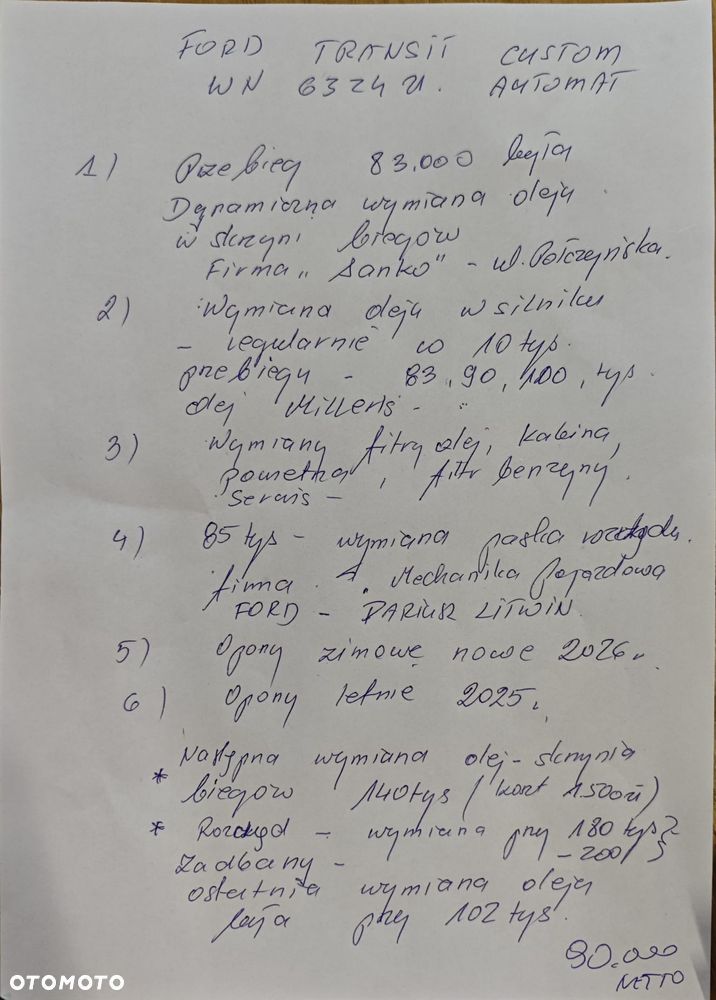 FORD TRANSIT CUSTOM
WN 6324U. AUTOMAT
1) Przebieg 83.000 była
Dynamiczna wymiana oleju
w skrzyni biegów
Firma „Sanko" - ul. Połczyńska.
2) Wymiana oleju w silniku
- regularnie co 10 tys.
przebiegu - 83, 90, 100, tys.
olej Millers -
3) Wymiany filtry olej, kabina,
powietrza, filtr benzyny.
Serwis -
4) 85 tys - wymiana paska rozrządu.
firma Mechanika Pojazdowa
FORD - DARIUSZ LITWIN
5) Opony zimowe nowe 2026r.
6) Opony letnie 2025r.
* Następna wymiana olej - skrzynia
biegów 140 tys (koszt 1500zł)
* Rozrząd - wymiana przy 180 tys
Zadbany - - 200
ostatnia wymiana oleju
była przy 102 tys.
90.000
NETTO
OTOMOTO